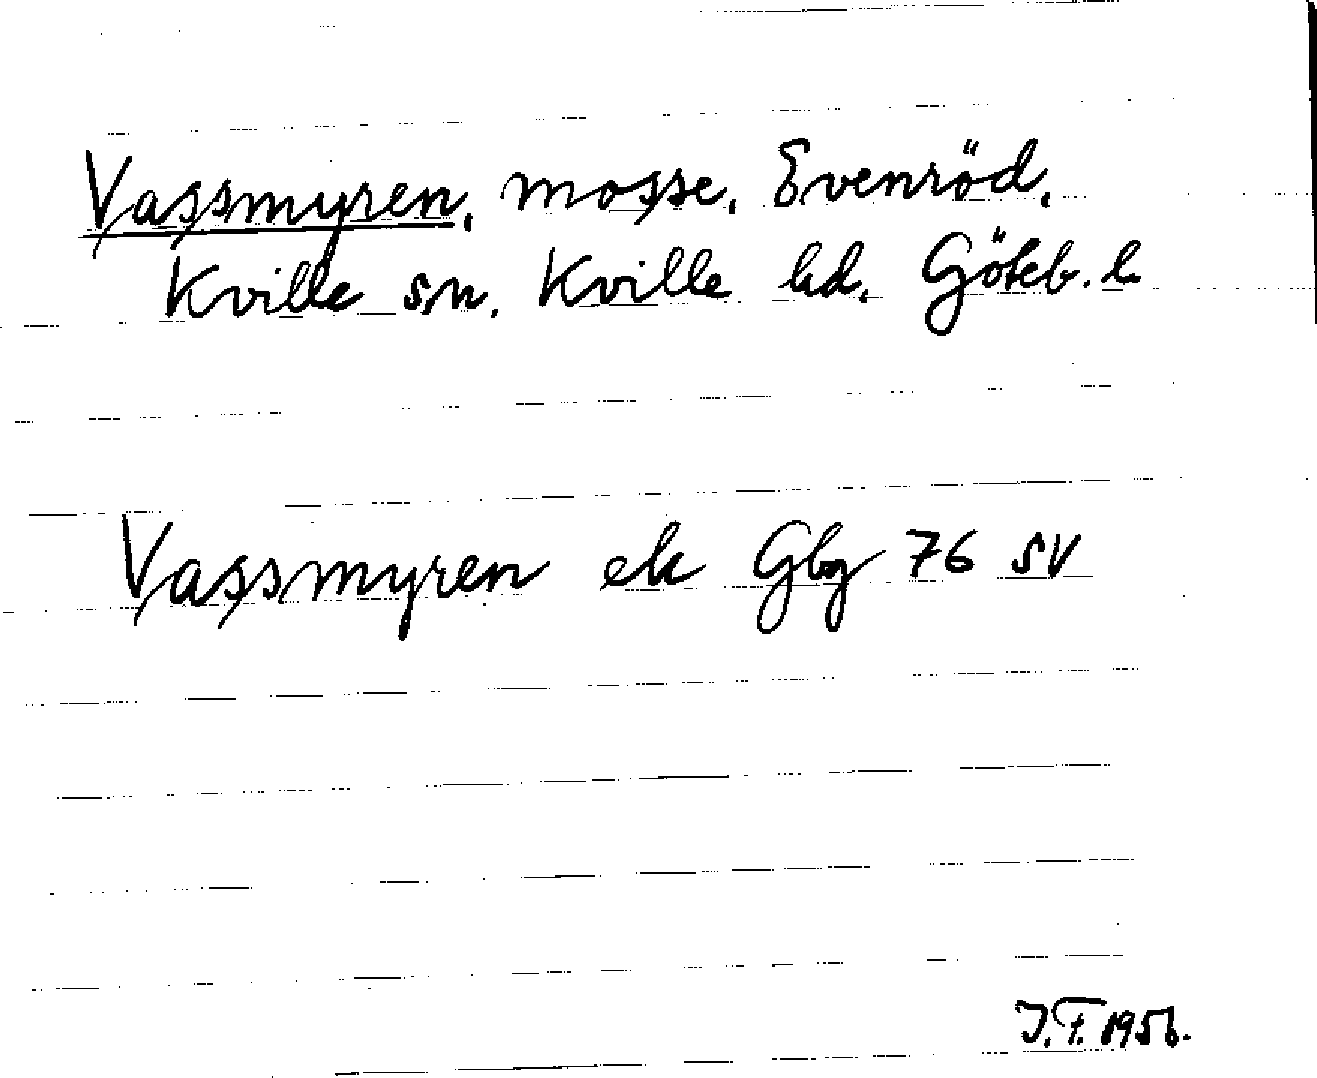 Vassmyren, mosse, Evenröd,
Kville sn. Kville hd. Göteb. l.
Vassmyren ek Gbg 76 SV
J.F. 1956.